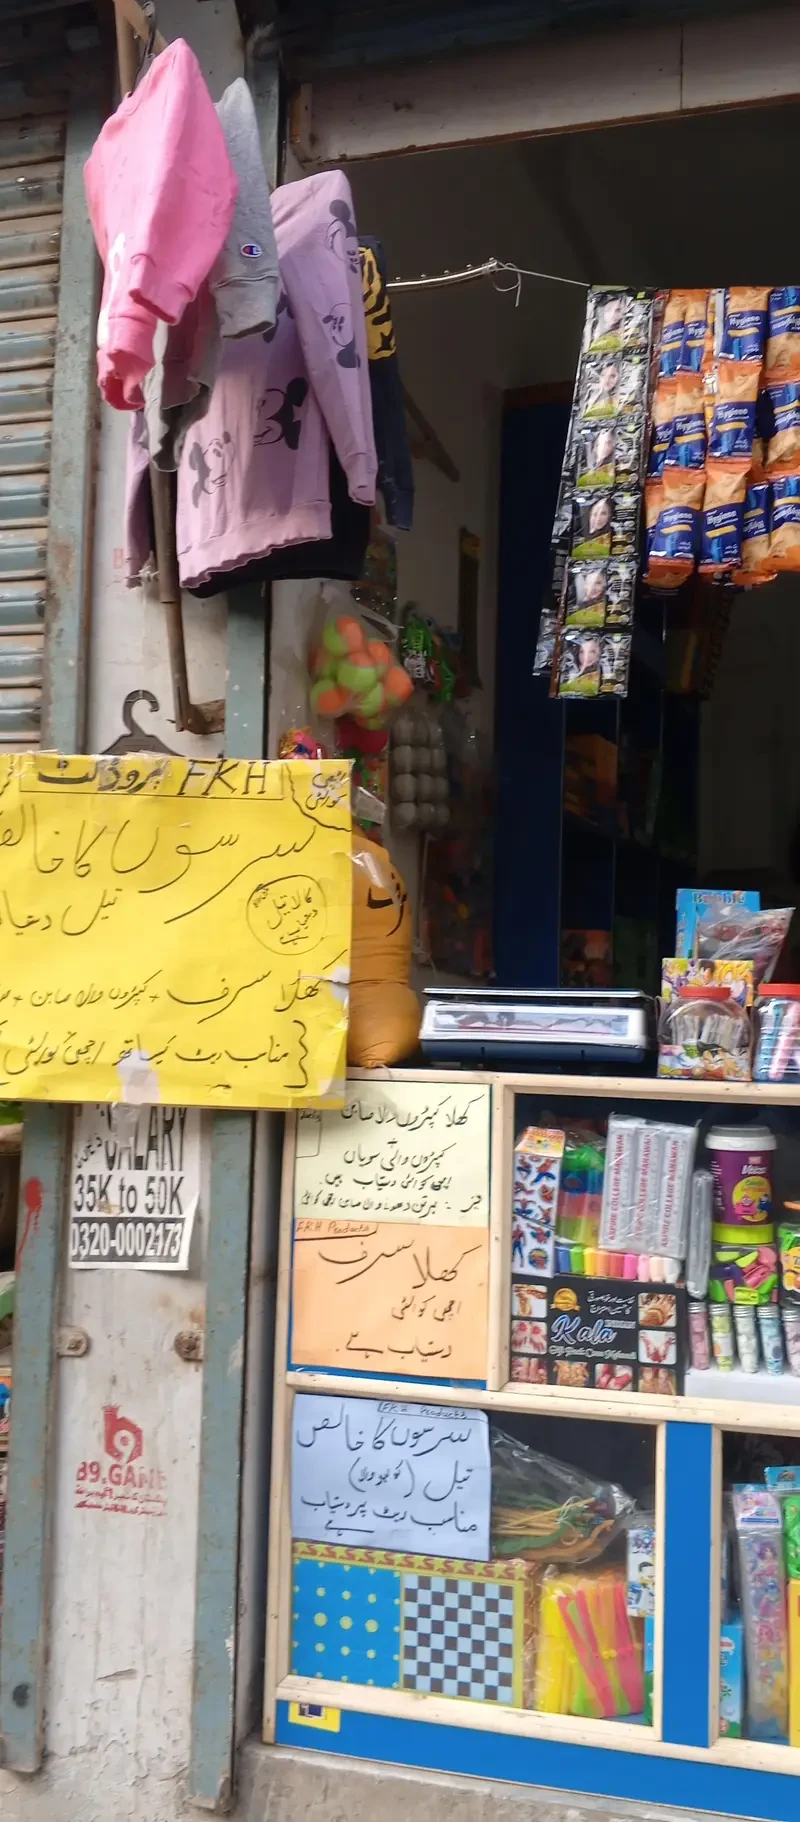 FKH پروڈکٹ
سرسوں کا خالص
تیل دستیاب
کالا تیل
دستیاب
ہے
کھلا سرف + کپڑوں والا صابن +
مناسب ریٹ کیساتھ اچھی کوالٹی
SALARY
35K to 50K
0320-0002173
کھلا کپڑوں والا صابن
کپڑوں والی سویاں
اچھی کوالٹی دستیاب ہیں۔
نیز :- برتن دھونے والا صابن اچھی کوالٹی
FKH Products
کھلا سرف
اچھی کوالٹی
دستیاب ہے۔
FKH Products
سرسوں کا خالص
تیل (کولہو والا)
مناسب ریٹ پر دستیاب
ہے
B9.GAME
Bubble
Hygiene
Hygiene
Hygiene
Hygiene
ASPIRE COLLEGE MANAWAN
ASPIRE COLLEGE MANAWAN
Kala